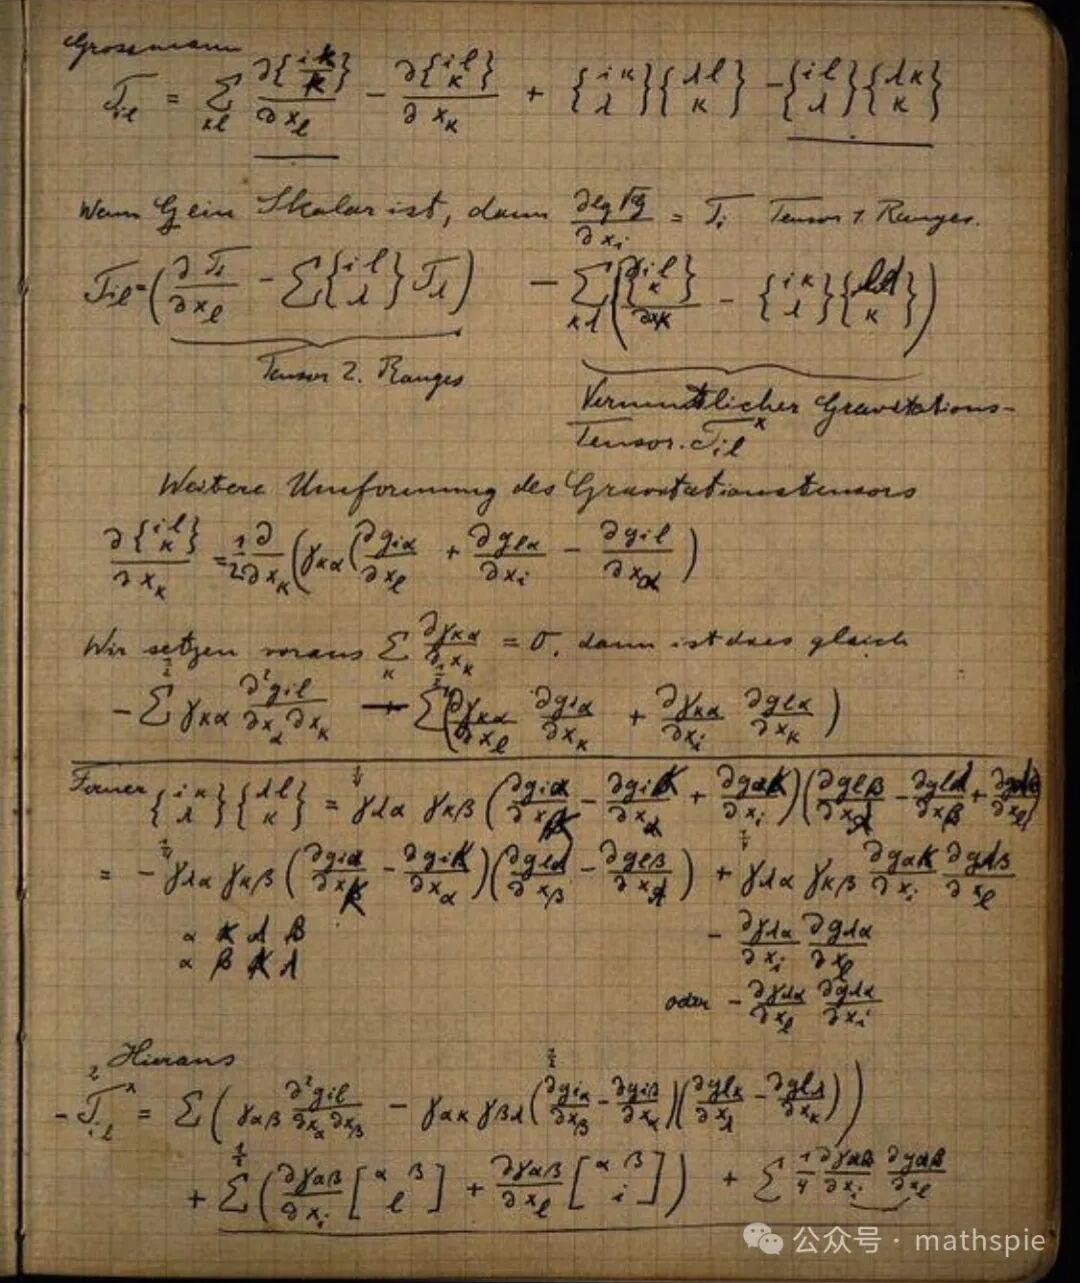 Grossmann
T_il = Σ_κl ∂{iκ κ}/∂x_l − ∂{il κ}/∂x_κ + {iκ λ}{λl κ} − {il λ}{λκ κ}
Wenn G ein Skalar ist, dann ∂lg√G/∂x_i = T_i Tensor 1. Ranges.
T_il = (∂T_i/∂x_l − Σ{il λ}T_λ) − Σ_κλ(∂{il κ}/∂x_κ − {iκ λ}{λl κ})
Tensor 2. Ranges
Vermutlicher Gravitations-
Tensor. T_il^x
Weitere Umformung des Gravitationstensors
∂{il κ}/∂x_κ = 1/2 ∂/∂x_κ (γ_κα(∂g_iα/∂x_l + ∂g_lα/∂x_i − ∂g_il/∂x_α)
Wir setzen voraus Σ_κ ∂γ_κα/∂x_κ = 0, dann ist dies gleich
− 1/2 Σ γ_κα ∂²g_il/∂x_α∂x_κ − 1/2 Σ(∂γ_κα/∂x_l ∂g_iα/∂x_κ + ∂γ_κα/∂x_i ∂g_lα/∂x_κ)
Ferner {iκ λ}{λl κ} = 1/4 γ_λα γ_κβ (∂g_iα/∂x_κ − ∂g_iκ/∂x_α + ∂g_ακ/∂x_i)(∂g_lβ/∂x_λ − ∂g_lλ/∂x_β + ∂g_λβ/∂x_l)
= − 1/4 γ_λα γ_κβ (∂g_iα/∂x_κ − ∂g_iκ/∂x_α)(∂g_lλ/∂x_β − ∂g_lβ/∂x_λ) + 1/4 γ_λα γ_κβ ∂g_ακ/∂x_i ∂g_λβ/∂x_l
α κ λ β
α β κ λ
− ∂γ_λα/∂x_i ∂g_λα/∂x_l
oder − ∂γ_λα/∂x_l ∂g_λα/∂x_i
Hieraus
− 2 T_il^x = Σ(γ_αβ ∂²g_il/∂x_α∂x_β − 1/2 γ_ακ γ_βλ (∂g_iα/∂x_β − ∂g_iβ/∂x_α)(∂g_lκ/∂x_λ − ∂g_lλ/∂x_κ))
+ 1/2 Σ(∂γ_αβ/∂x_i [αβ l] + ∂γ_αβ/∂x_l [αβ i]) + Σ 1/4 ∂γ_αβ/∂x_i ∂g_αβ/∂x_l
公众号 · mathspie